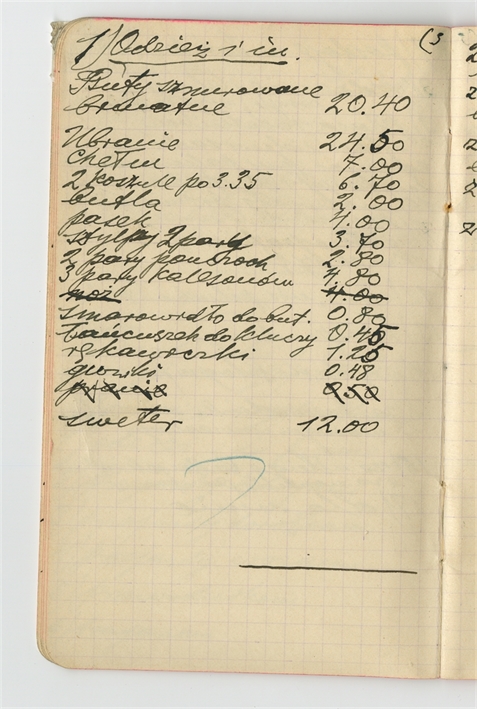 1) Odzież i in. (3
Buty sznurowane
brunatne 20.40
Ubranie 24.50
Chełm 7.00
2 koszule po 3.35 6.70
butla 2.00
pasek 4.00
sztylpy 2 pary 3.70
2 pary pończoch 2.80
3 pary kalesonów 4.80
nóż 4.00
smarowidło do but. 0.80
łańcuszek do kluczy 0.45
rękawiczki 1.25
guziki 0.48
pranie 0.50
sweter 12.00